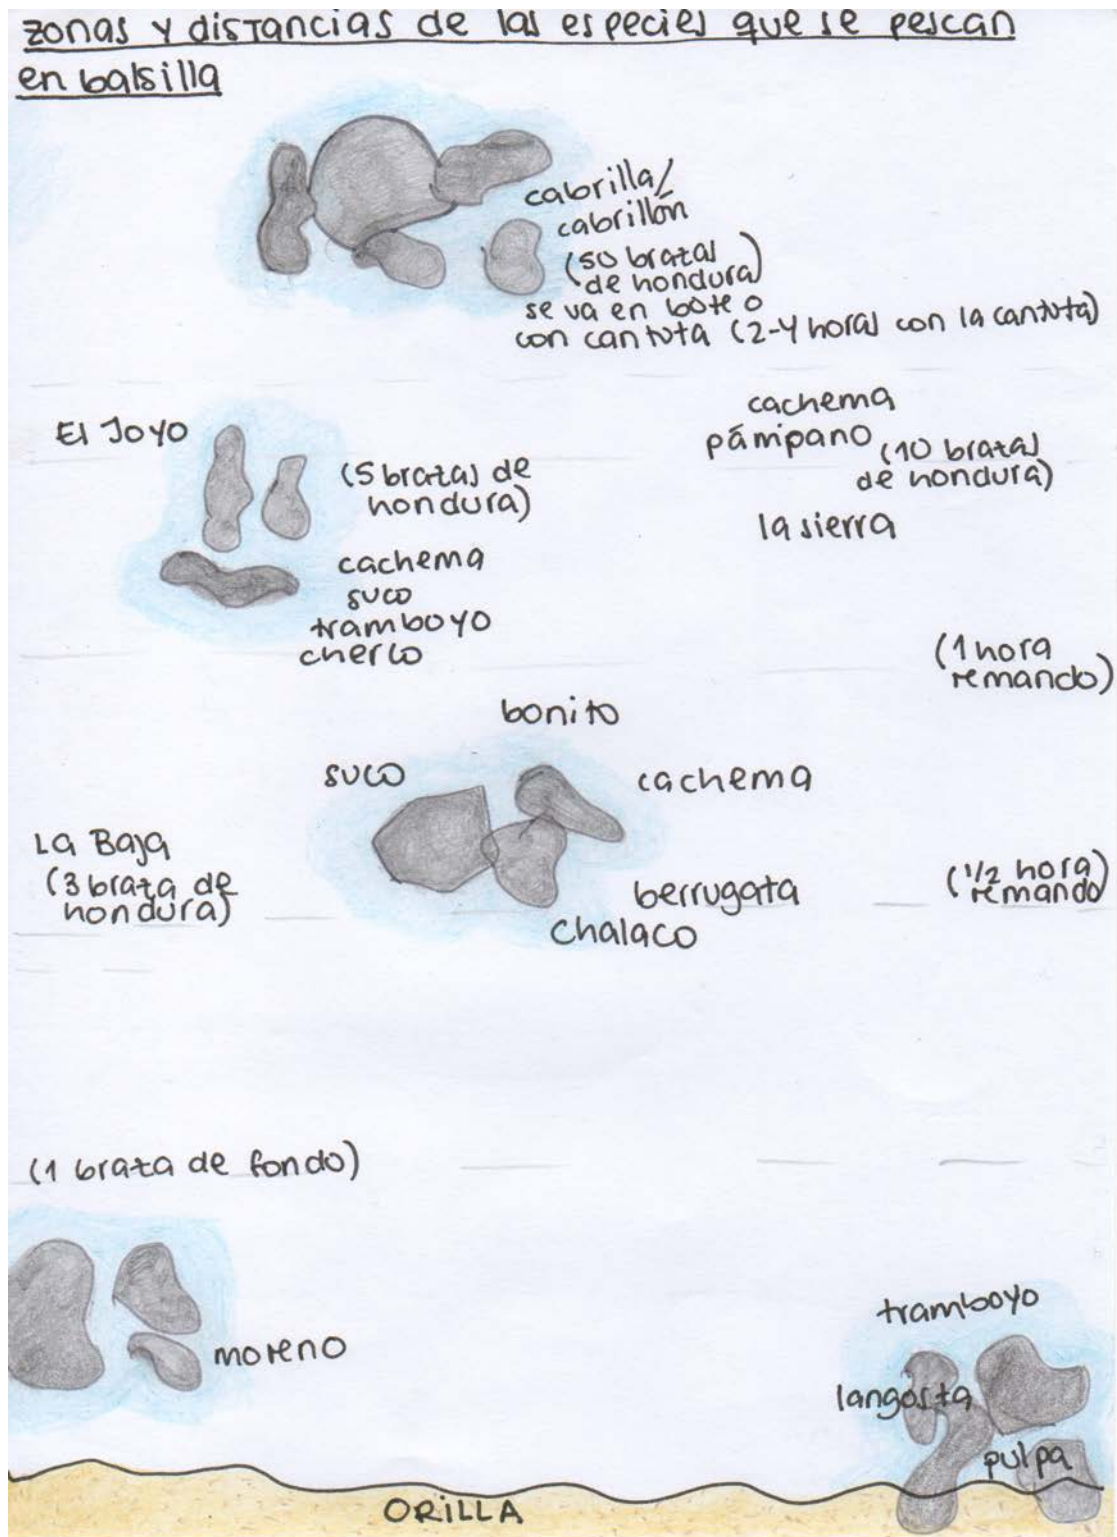 zonas y distancias de las especies que se pescan
en balsilla
cabrilla/
cabrillón
(50 brazas
de hondura)
se va en bote o
con cantuta (2-4 horas con la cantuta)
El Joyo
(5 brazas de
hondura)
cachema
suco
tramboyo
cherlo
cachema
pámpano (10 brazas
de hondura)
la sierra
(1 hora
remando)
bonito
suco
cachema
La Baja
(3 braza de
hondura)
berrugata
chalaco
(1/2 hora
remando)
(1 braza de fondo)
moreno
tramboyo
langosta
pulpa
ORILLA